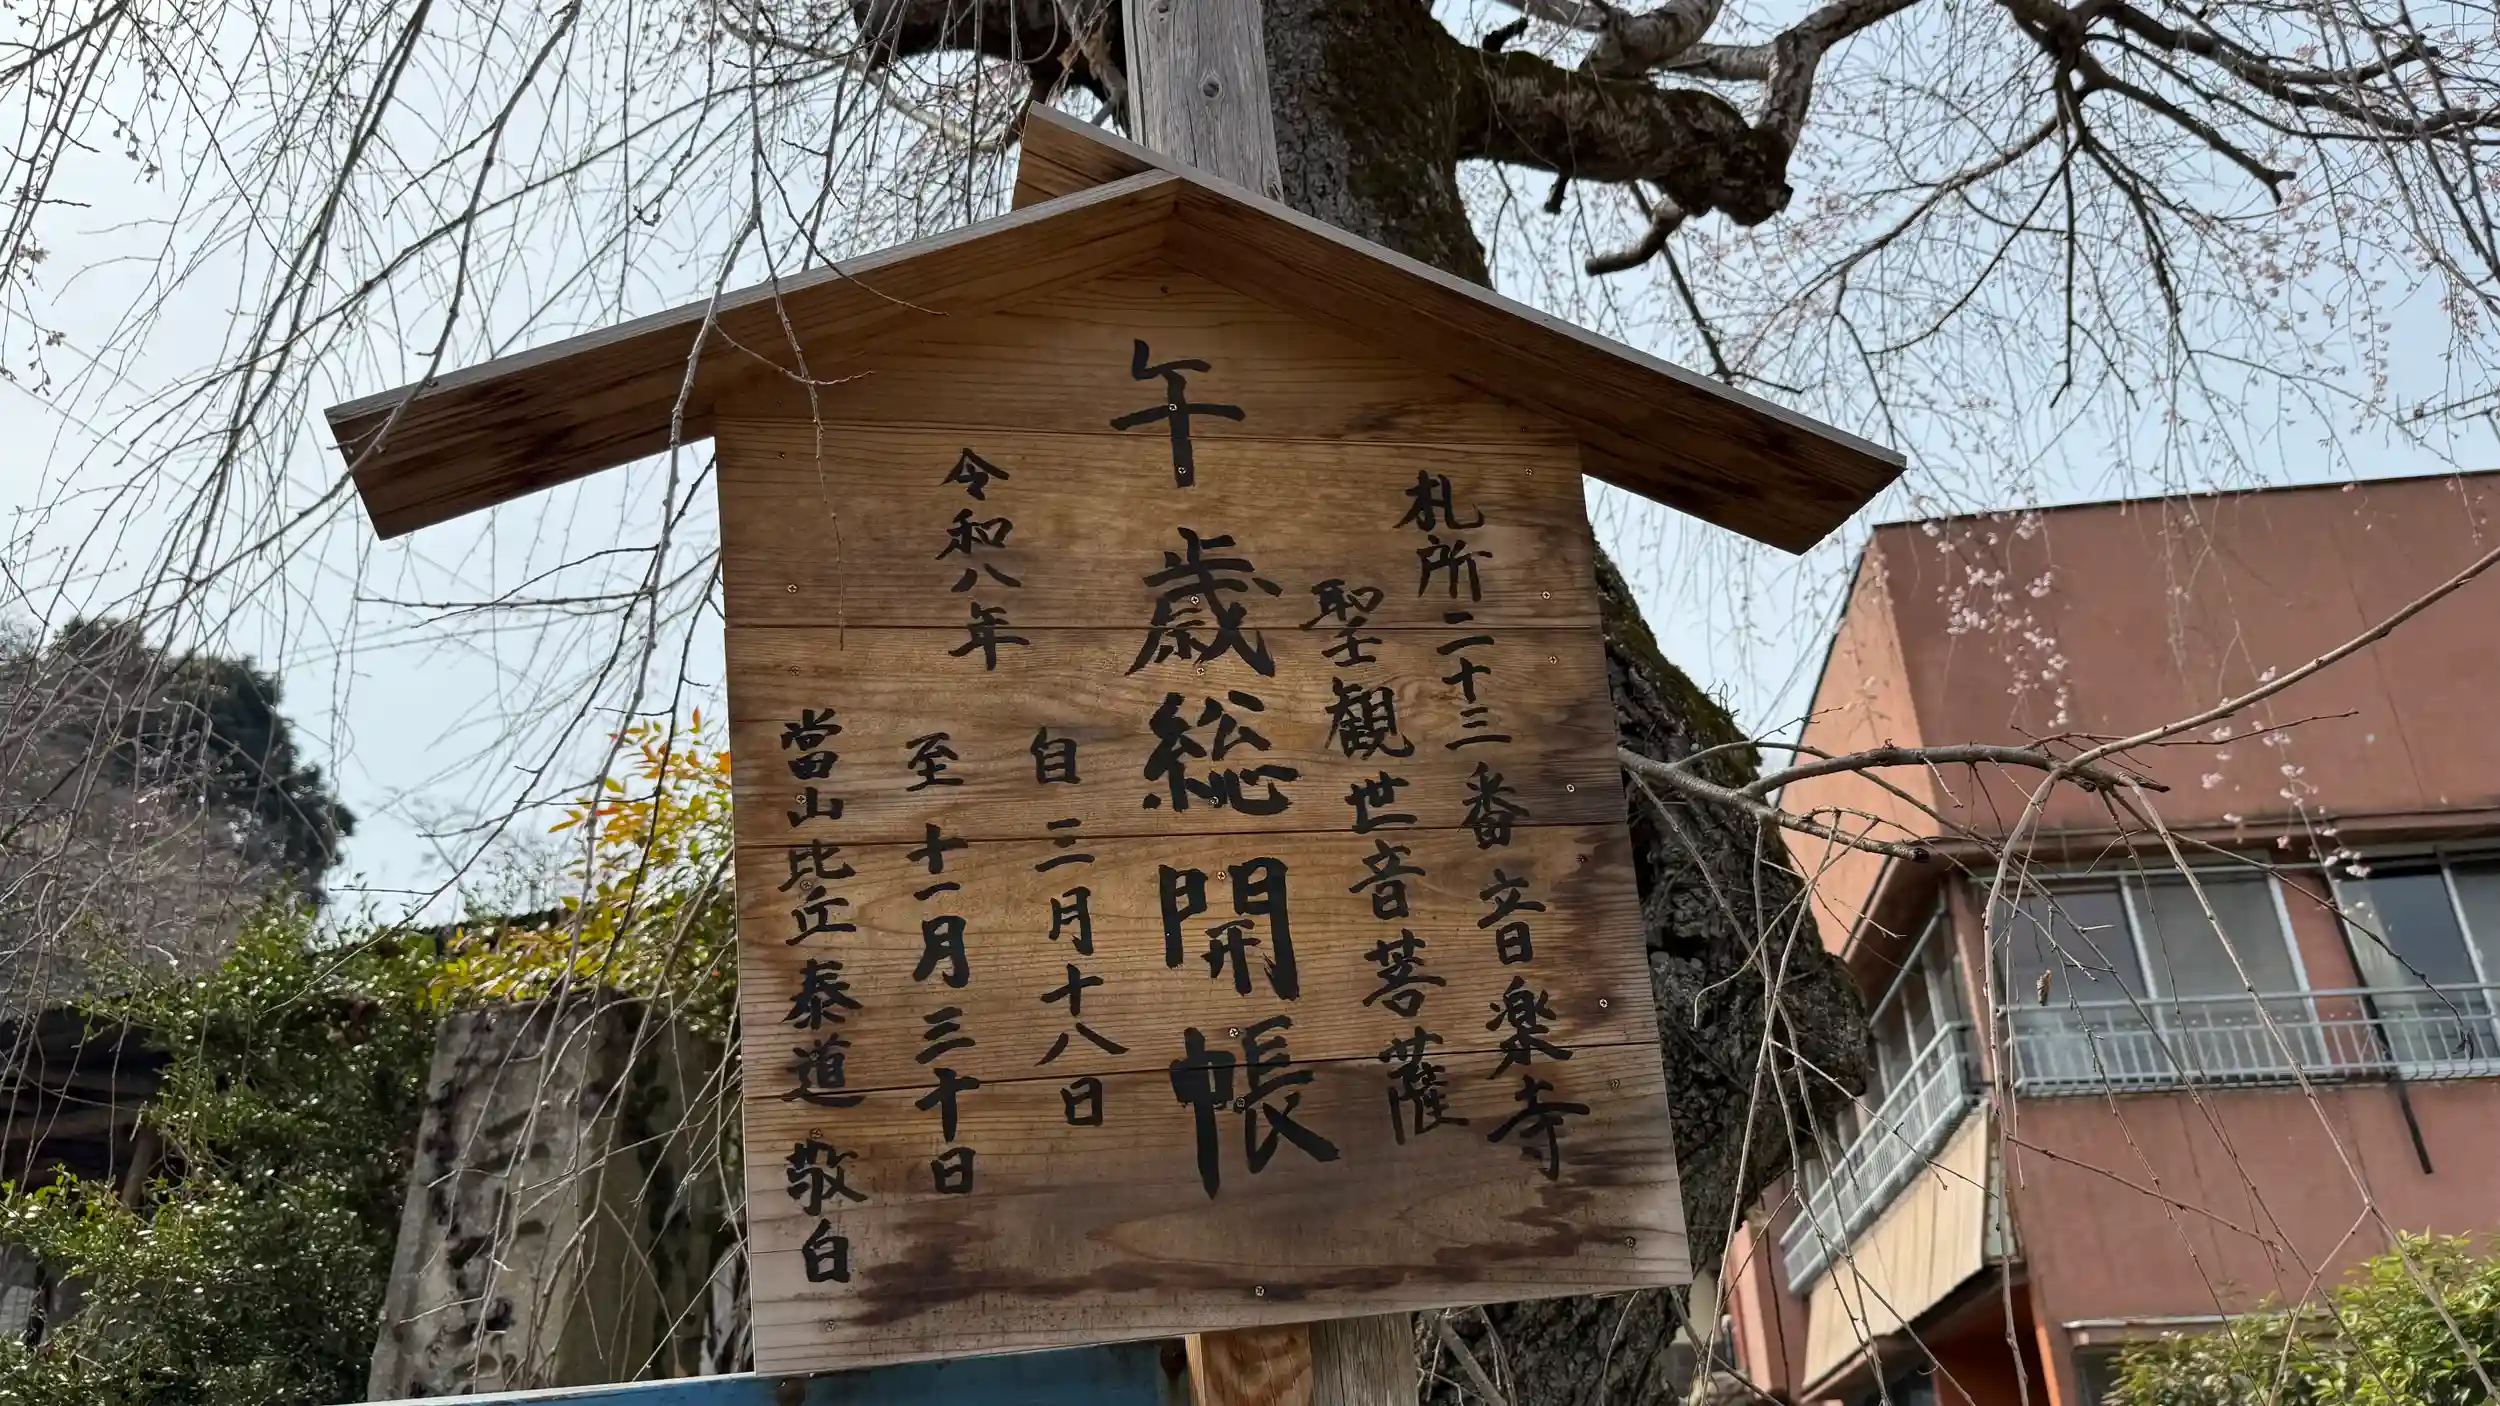 札所二十三番音楽寺
聖観世音菩薩
午歳総開帳
令和八年
自三月十八日
至十一月三十日
當山比丘泰道敬白